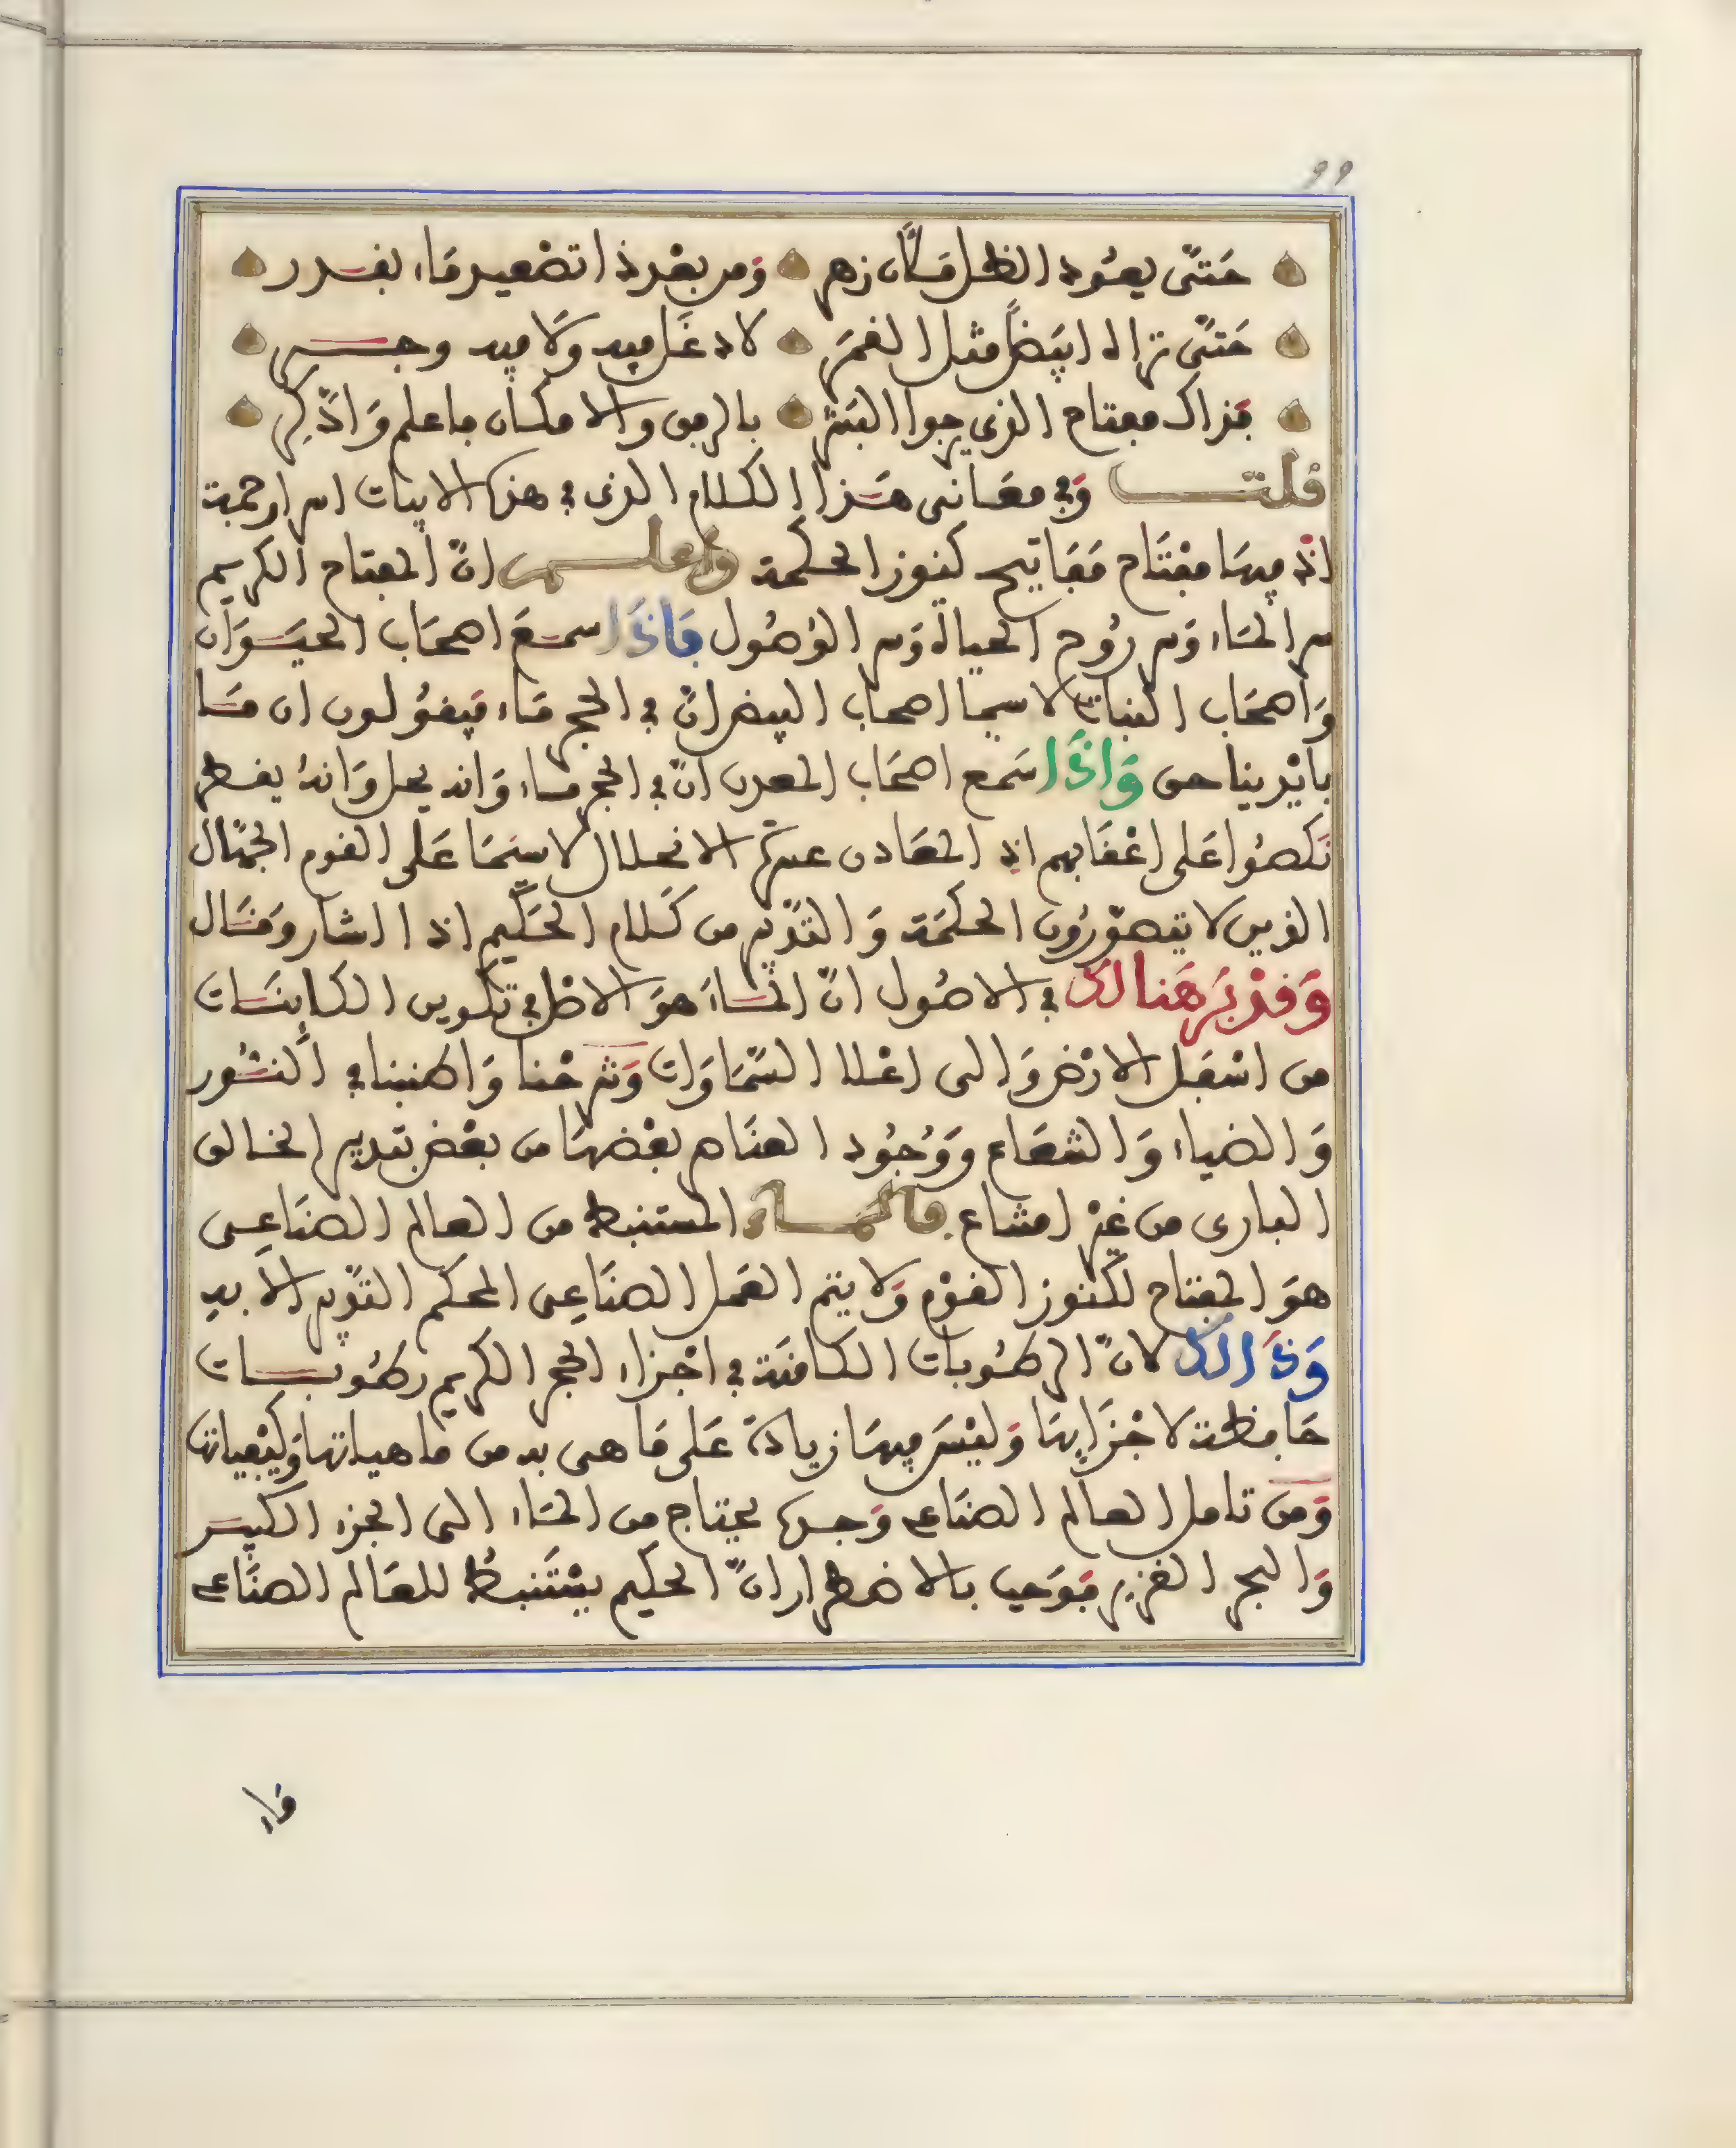 99
حَتَّى يعُود الظل مَآن زهر وَمن بعْد ذا تصْعيد مَاء بقدر
حَتَّى تراه ابيَضاً مثل القمَر لا دغَل فيه وَلا فيه وضر
فذاك مفتاح الذي يرجوا البَشر بالرفق والامكان فاعلم وَادَّكر
قلت وَفي معَاني هَذا الكلام الذي في هذه الابيات اسرار جمة
اذ فيهَا مفْتَاح مَفَاتيح كنوز الحكمة واعلم انّ المفتاح الكريم
سر المَاء وَسر رُوح الحياة وَسر الوُصُول فَاذَا سمعَ اصحَاب الحيَوَان
وَاصْحَاب النبات لا سيما اصحَاب البيض انّ في الحجر مَاء فيَقُولون ان مَا
بايْدينا حق وَاذَا سَمع اصحَاب المعدن انّ في الحجر مَاء وَانه يحل وَانهُ يقطر
نَكصُوا عَلى اعْقَابهم اذ المعَادن عسرَة الانحلال لا سيَمَا عَلى القوم الجهّال
الذين لا يتصَوّرُون الحكمَة وَالتدْبير من كَلام الحَكيم اذا اشار وَقَال
وَقدْ بَرهَنا لك في الاصُول انّ المَاء هوَ الاصْل في تكوين الكاينَات
من اسْفل الارْض وَالى اعْلا السَّمَاوَات وَشرحْنا وَاطنبنا في النُّور
وَالضياء وَالشعَاع وَوُجُود العنَاصر بعْضهَا من بعْض بتدبير الخالق
البارى من غيْر امشاع فالمَاء المستنبط من العالم الصنَاعِي
هوَ المفتاح لكنوز القوْم وَلا يتم العَمل الصنَاعِي المحكم التدْبير الا به
وَذَالك لانّ الرطُوبات الكامنَة في اجْزاء الحجر الكريم رطُوبَات
حَافظة لاجْزَايهَا وَليْسَ فيهَا زيادة عَلى مَا هي به من ماهياتها وَكيْفياتها
وَمن تامل العالم الصنَاعي وَجده يحتاج من المَاء الى الجزء الكبير
وَالبحر الغزير فوَجب بالاضطرار انّ الحكيم يسْتَنبطُ للعَالم الصنَاعي
مَاء